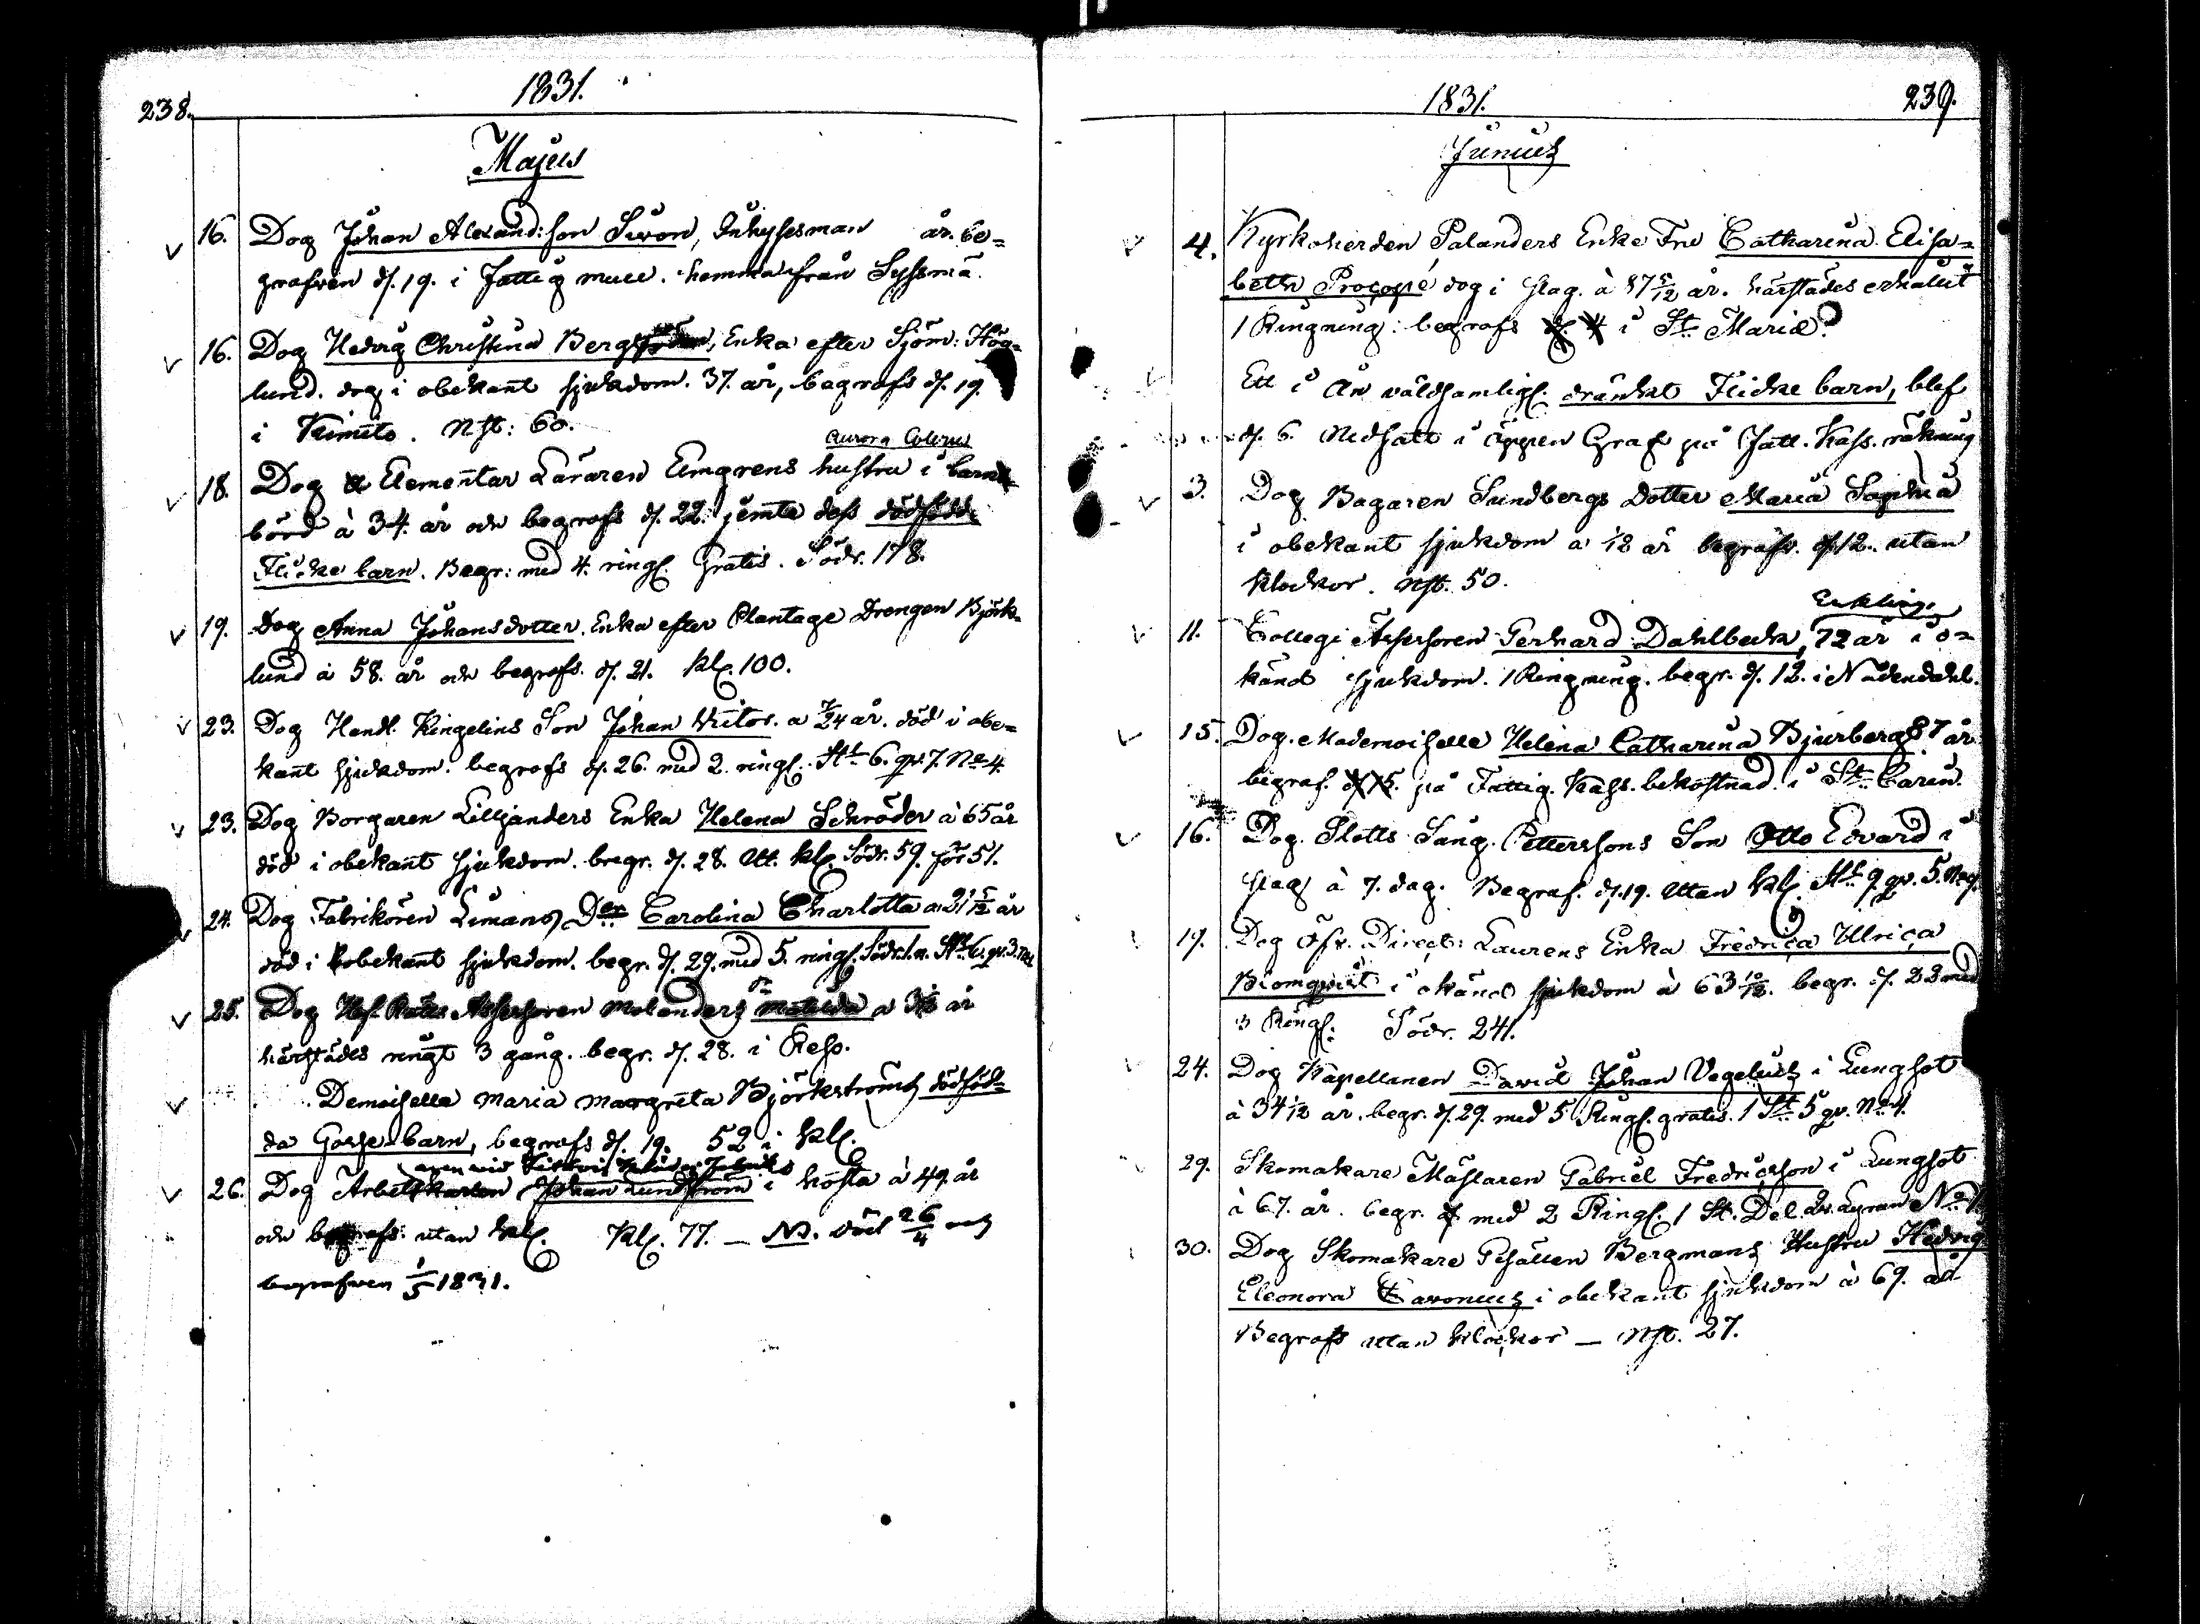 238.
1831.
Majus
16. Dog Johan Alexand:son Sivon, Inhysesman år. be=
grafven d. 19. i Fattig mull. hemma från Syssmä.
16. Dog Hedvig Christina Berg, Enka efter Sjöm: Hög=
lund. dog i obekant sjukdom. 37. år, begrofs d. 19.
i Kimito. Nst: 60.
Aurora
18. Dog Elementar Läraren Elmgrens hustru i barns
börd à 34. år och begrofs d. 22. jemte dess dödfödde
Flicke barn. Begr: med 4. ring. Gratis. Södr. 178.
19. Dog Anna Johansdotter. Enka efter Plantage Drengen Björk=
lund à 58. år och begrofs. d. 21. Kl. 100.
23. Dog Handl. Ringelins Son Johan Vitor. a 7/24 år. död i obe=
kant sjukdom. begrofs d. 26. med 2. ring. St. 6. qv. 7. No 4.
23. Dog Borgaren Lilljanders Enka Helena Schröder à 65 år
död i obekant sjukdom. begr. d. 28. Utt. kl. Södr. 59. för 51.
24. Dog Fabrikören Limans Dor Carolina Charlotta a 21 5/12 år
död i obekant sjukdom. begr. d. 29. med 5. ring. Södr. St. 6. qv. 3.
25. Dog Hof Rätts Assessoren Molanders Dr Matilda a år
härstädes ringt 3 gång. begr. d. 28. i Reso.
Demoiselle Maria Margreta Björkströms dödföd=
da Gosse barn, begrofs d. 19. 52 i kl.
26. Dog Arbetskarlen Johan Lundström i hosta à 49. år
och begrofs: utan kl. Kl. 77. — NB. död 26/4 och
begrafven 1/5 1831.
1831.
239.
Junius
4. Kyrkoherden Palanders Enke Fru Catharina Elisa=
beth Procopé dog i slag. à 87 5/12 år. härstädes erhållit
1 Ringning: begrofs i St. Mariæ.
Ett i Ån våldsamlig. dränkt Flicke barn, blef
d. 6. Nedsatt i öppen Graf på Fatt. Kass. räkning
3. Dog Bagaren Sundbergs Dotter Maria Sophia
i obekant sjukdom a 1/2 år begrafv. d. 12. utan
klockor. Nst. 50.
Enkling
11. Collegi Assessoren Gerhard Dahlbeck, 72 år i o=
känd sjukdom. 1 Ringning. begr. d. 12. i Nådendahl.
15. Dog. Mademoiselle Helena Catharina Bjurberg 87 år
begraf. d. 15. på Fattig. Kass. bekostnad. i St. Carin.
16. Dog. Slotts Fång. Petterssons Son Otto Edvard i
slag à 7. dag. Begraf. d. 19. Utan kl. St. 9 qv. 5. No 9.
19. Dog Öfv. Direct: Laurens Enka Fredrica Ulrica
Blomqvist i okänd sjukdom à 63 10/12. begr. d. 23 med
3 Ring. Södr. 241.
24. Dog Kapellanen David Johan Vegelius i Lungsot
à 34 1/2 år. begr. d. 29. med 5 Ring. gratis. 1 St. 5 qv. No 4.
29. Skomakare Mästaren Gabriel Fredricsson i Lungsot
à 67. år. begr. med 2 Ring. 1 St. Del. No 1.
30. Dog Skomakare Gesällen Bergmans Hustru Hedvig
Eleonora Cavonius i obekant sjukdom à 69. år
Begrofs utan klockor — Nst. 27.